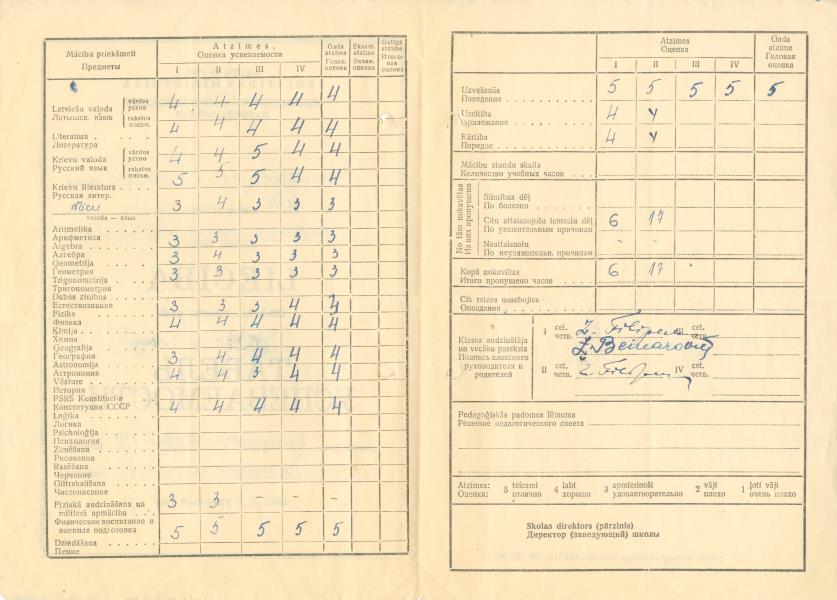 Mācību priekšmeti
Предметы
Atzīmes
Оценка успеваемости
I II III IV
Gada atzīme
Годов. оценка
Eksam. atzīme
Экзам. оценка
Galīgā atzīme
Итоговая оценка
Latviešu valoda
Латышск. язык
vārdos
устно
4 4 4 4 4
rakstos
письм.
4 4 4 4 4
Literatura
Литература
Krievu valoda
Русский язык
vārdos
устно
4 4 5 4 4
rakstos
письм.
5 5 5 4 4
Krievu literatura
Русская литер.
3 4 3 3 3
valoda — язык
Aritmetika
Арифметика
3 3 3 3 3
Algebra
Алгебра
3 4 3 3 3
Ģeometrija
Геометрия
3 3 3 3 3
Trigonometrija
Тригонометрия
Dabas zinības
Естествознание
3 3 3 4 4
Fizika
Физика
4 4 4 4 4
Ķīmija
Химия
Ģeografija
География
3 4 4 4 4
Astronomija
Астрономия
4 4 3 4 4
Vēsture
История
PSRS Konstitucija
Конституция СССР
4 4 4 4 4
Loģika
Логика
Psicholoģija
Психология
Zīmēšana
Рисование
Rasēšana
Черчение
Glītrakstīšana
Чистописание
Fiziskā audzināšana un militarā apmācība
3 3 - - -
Физическое воспитание и военная подготовка
5 5 5 5 5
Dziedāšana
Пение
Atzīmes
Оценка
I II III IV
Gada atzīme
Годовая оценка
Uzvešanās
Поведение
5 5 5 5 5
Uzcītība
Прилежание
4 4
Kārtība
Порядок
4 4
Mācību stundu skaits
Количество учебных часов
No tām nokavētas
Из них пропущено
Slimības dēļ
По болезни
Citu attaisnojošu iemeslu dēļ
По уважительным причинам
6 17
Neattaisnotu
По неуважительн. причинам
- -
Kopā nokavētas
Итого пропущено часов
6 17
Cik reizes nosebojies
Опоздания
Klases audzinātāja un vecāku paraksts
Подпись классного руководителя и родителей
I cet.
четв.
III cet.
четв.
II cet.
четв.
IV cet.
четв.
Pedagoģiskās padomes lēmums
Решение педагогического совета
Atzīmes: 5 teicami 4 labi 3 apmierinoši 2 vāji 1 ļoti vāji
Оценки: отлично хорошо удовлетворительно плохо очень плохо
Skolas direktors (pārzinis)
Директор (заведующий) школы